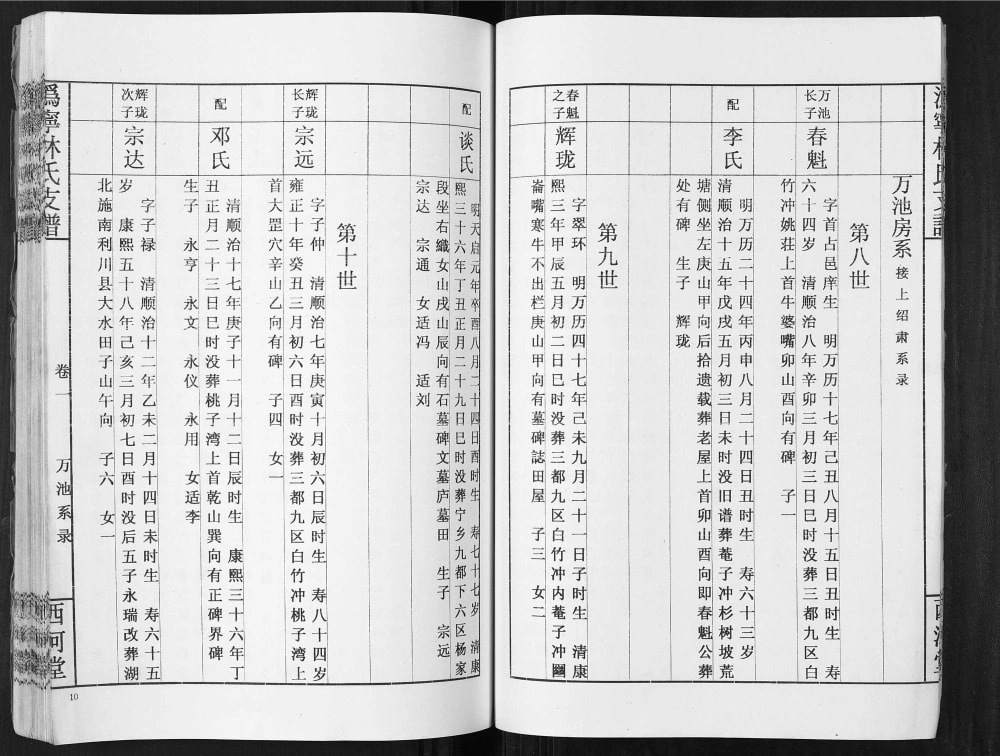 万池房系 接上绍肃系录
第八世
万池
长子
春魁
字首占邑庠生 明万历十七年己丑八月十五日丑时生 寿
六十四岁 清顺治八年辛卯三月初三日巳时没葬三都九区白
竹冲姚荘上首牛婆嘴卯山酉向有碑 子一
配
李氏
明万历二十四年丙申八月二十四日丑时生 寿六十三岁
清顺治十五年戊戌五月初三日未时没旧谱葬菴子冲杉树坡荒
塘侧坐左庚山甲向后拾遗载葬老屋上首卯山酉向即春魁公葬
处有碑 生子 辉珑
第九世
春魁
之子
辉珑
字翠环 明万历四十七年己未九月二十一日子时生 清康
熙三年甲辰五月初二日巳时没葬三都九区白竹冲内菴子冲
崙嘴寒牛不出栏庚山甲向有墓碑誌田屋 子三 女二
配
谈氏
明天启元年辛酉八月二十四日酉时生 寿七十七岁 清康
熙三十六年丁丑正月二十九日巳时没葬宁乡九都下六区杨家
段坐右織女山戌山辰向有石墓碑文墓庐墓田 生子 宗远
宗达 宗通 女适冯 适刘
第十世
辉珑
长子
宗远
字子仲 清顺治七年庚寅十月初六日辰时生 寿八十四岁
雍正十年癸丑三月初六日酉时没葬三都九区白竹冲桃子湾上
首大罡穴辛山乙向有碑 子四 女一
配
邓氏
清顺治十七年庚子十一月十二日辰时生 康熙三十六年丁
丑正月二十三日巳时没葬桃子湾上首乾山巽向有正碑界碑
生子 永亨 永文 永仪 永用 女适李
辉珑
次子
宗达
字子禄 清顺治十二年乙未二月十四日未时生 寿六十五
岁 康熙五十八年己亥三月初七日酉时没后五子永瑞改葬湖
北施南利川县大水田子山午向 子六 女一
寧林氏支譜
卷一
万池系录
西河堂
10